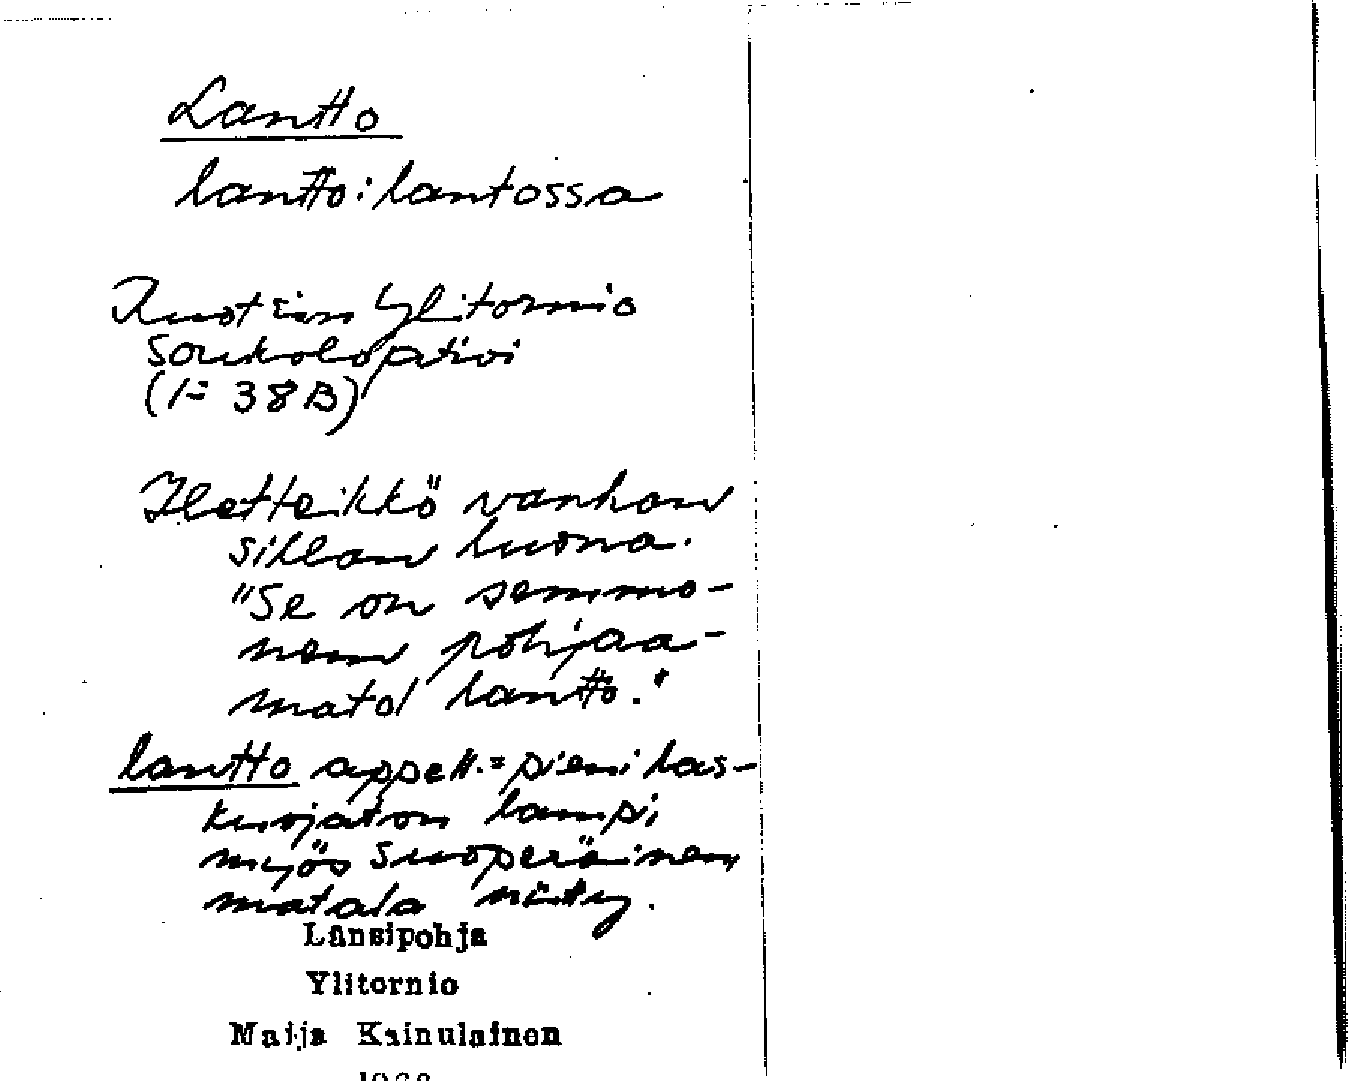 Lantto
lantto: lantossa
Ruotsin Ylitornio
Soukolopativi
(1= 38B)
Hetteikkö vanhan
sillan luona.
"Se on semmo-
nem pohjaa-
matol lantto."
lantto appell. = pieni las-
kuojaton lampi,
myös suoperäinen
matala niitty.
Länsipohja
Ylitornio
Maija Kainulainen